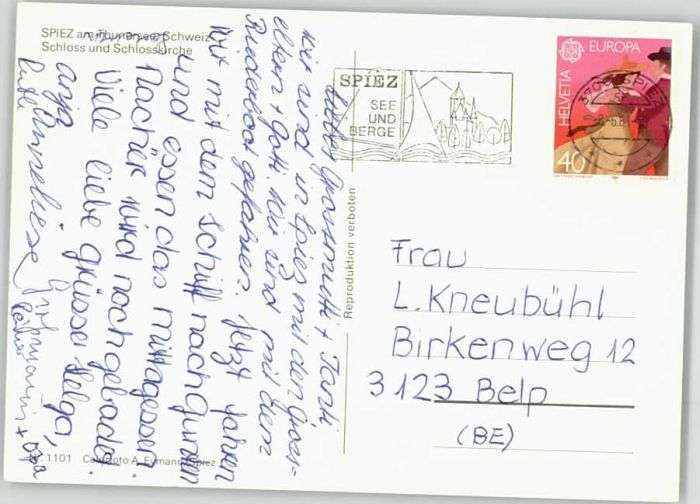 SPIEZ am Thunersee, Schweiz
Schloss und Schlosskirche
Liebes Grossmutti + Tanti
wir sind in Spiez mit den Gross-
eltern + Gotti. Wir sind mit dem
gefahren. Jetzt fahren
wir mit dem schiff nach gunten
und essen das mittagessen.
Nachär wird noch gebadet.
Viele liebe grüsse Helga,
Anja
Anneliese Grosmami + Opa
Ruth
1101
Reproduktion verboten
SPIEZ
SEE
UND
BERGE
3700 SPIEZ
EUROPA
HELVETIA
40
Frau
L. Kneubühl
Birkenweg 12
3123 Belp
(BE)